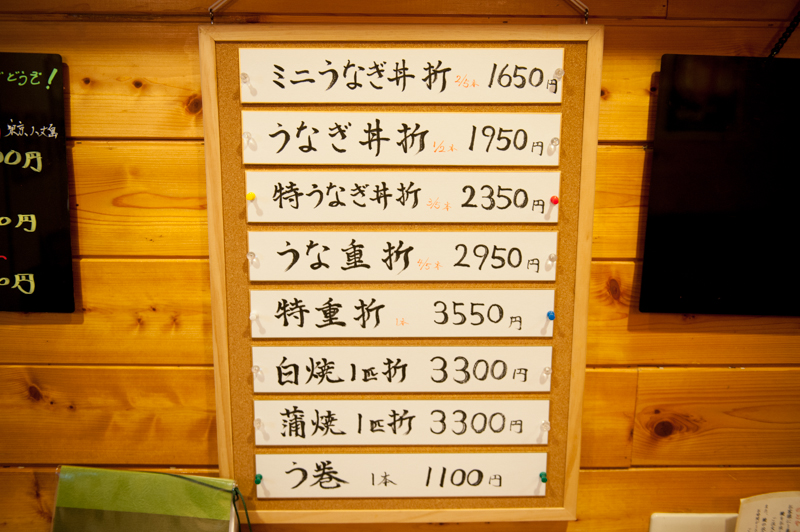 どうぞ!
00円
0円
0円
ミニうなぎ丼折 2/5本 1650円
うなぎ丼折 1/2本 1950円
特うなぎ丼折 3/5本 2350円
うな重折 4/5本 2950円
特重折 1本 3550円
白焼1匹折 3300円
蒲焼1匹折 3300円
う巻 1本 1100円